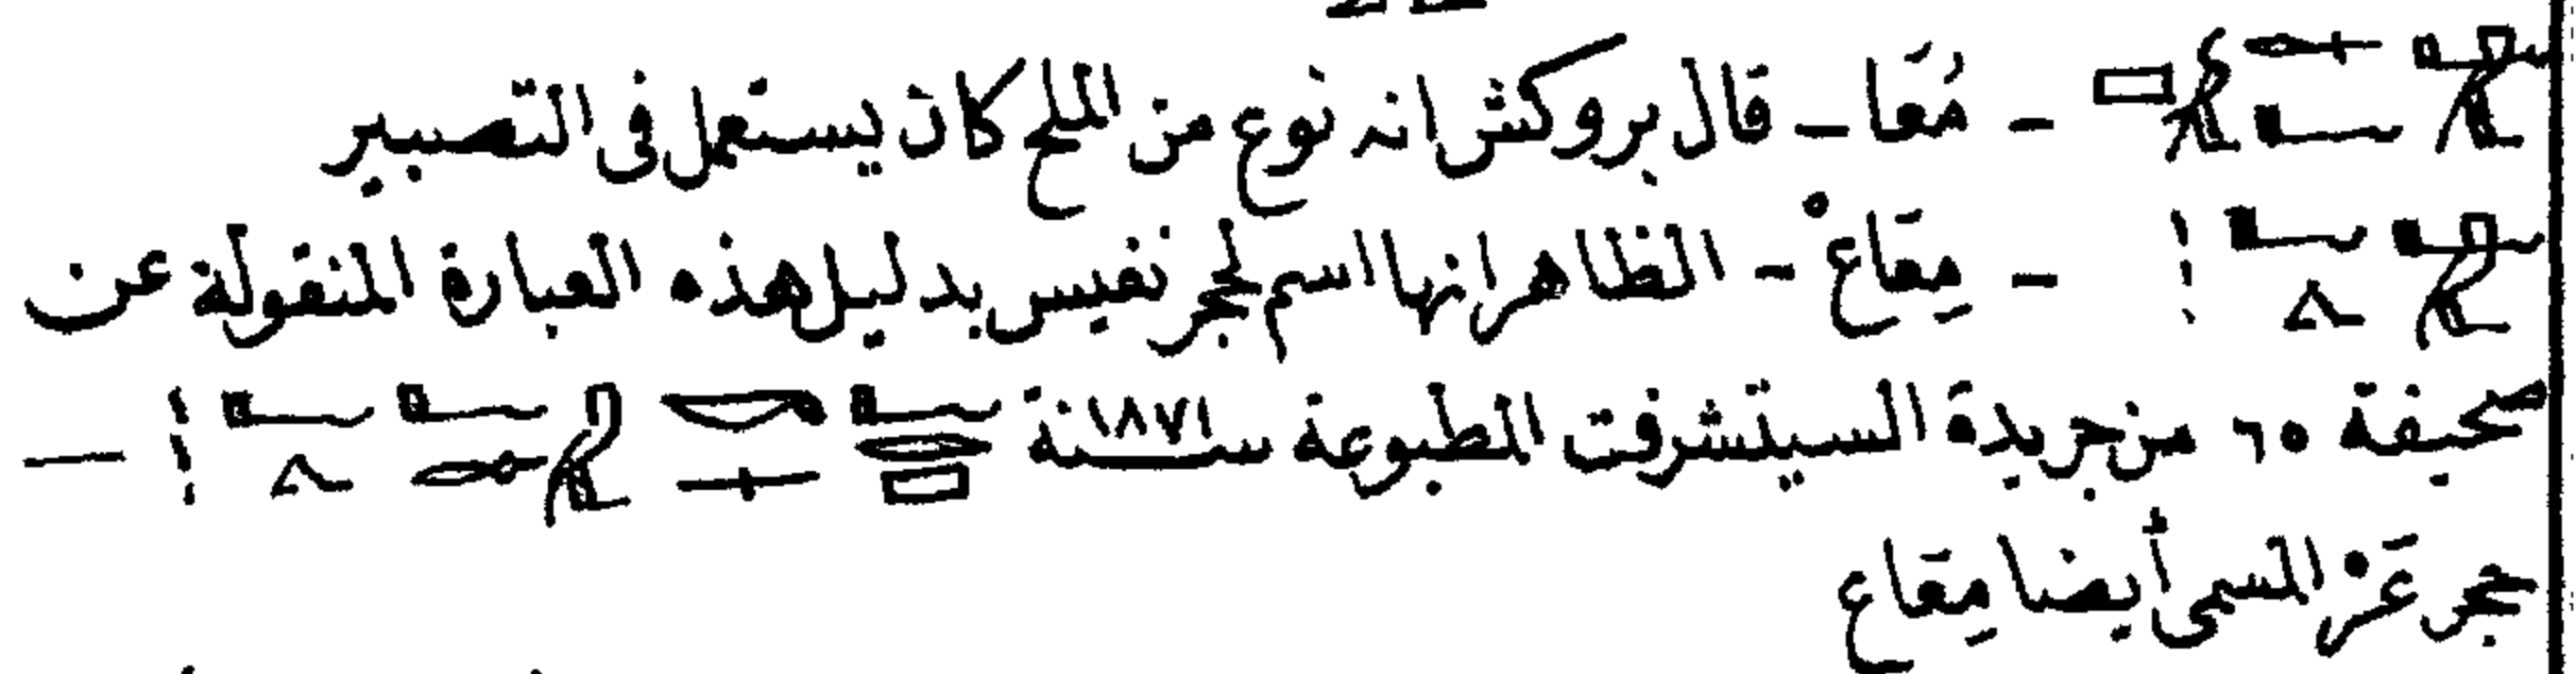 - مُقَا - قال بروكش انه نوع من الملح كان يستعمل فى التصبير
- مِقَاعْ - الظاهر انها اسم لحجر نفيس بدليل هذه العبارة المنقولة عن
صحيفة ٦٥ من جريدة السيتشرفت المطبوعة سنة ١٨٧١ -
حجر عَزْ المسمى أيضا مِقَاع